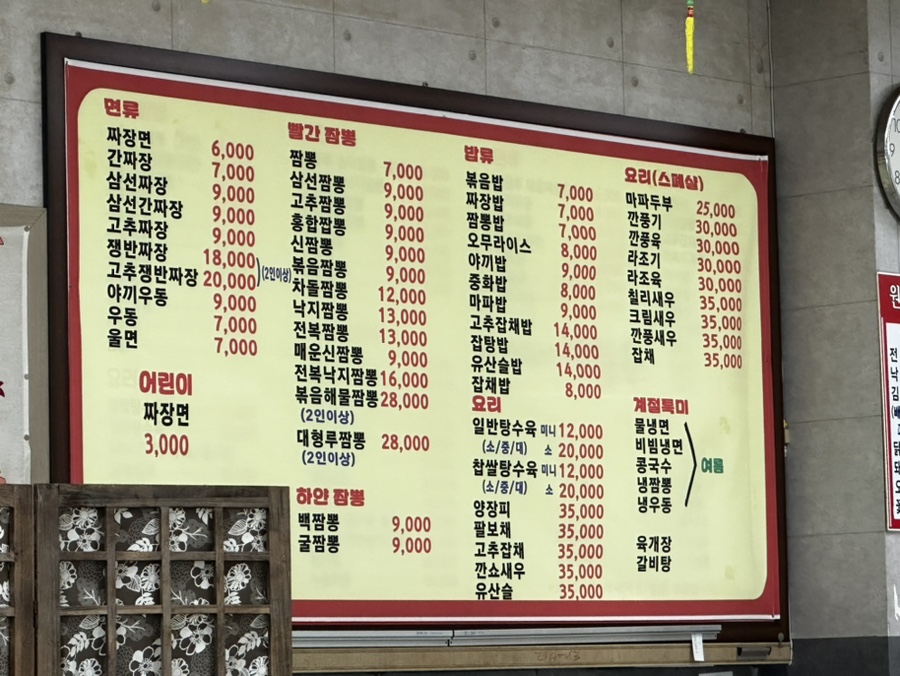 면류
짜장면 6,000
간짜장 7,000
삼선짜장 9,000
삼선간짜장 9,000
고추짜장 9,000
쟁반짜장 18,000
고추쟁반짜장 20,000 (2인이상)
야끼우동 9,000
우동 7,000
울면 7,000
어린이
짜장면
3,000
빨간 짬뽕
짬뽕 7,000
삼선짬뽕 9,000
고추짬뽕 9,000
홍합짭뽕 9,000
신짬뽕 9,000
볶음짬뽕 9,000
차돌짬뽕 12,000
낙지짬뽕 13,000
전복짬뽕 13,000
매운신짬뽕 9,000
전복낙지짬뽕 16,000
볶음해물짬뽕 28,000
(2인이상)
대형루짬뽕 28,000
(2인이상)
하얀 짬뽕
백짬뽕 9,000
굴짬뽕 9,000
밥류
볶음밥 7,000
짜장밥 7,000
짬뽕밥 7,000
오무라이스 8,000
야끼밥 9,000
중화밥 8,000
마파밥 9,000
고추잡채밥 14,000
잡탕밥 14,000
유산슬밥 14,000
잡채밥 8,000
요리
일반탕수육 미니 12,000
(소/중/대) 소 20,000
찹쌀탕수육 미니 12,000
(소/중/대) 소 20,000
양장피 35,000
팔보채 35,000
고추잡채 35,000
깐쇼새우 35,000
유산슬 35,000
요리(스페샬)
마파두부 25,000
깐풍기 30,000
깐풍육 30,000
라조기 30,000
라조육 30,000
칠리새우 35,000
크림새우 35,000
깐풍새우 35,000
잡채 35,000
계절특미
물냉면
비빔냉면
콩국수
냉짬뽕
냉우동
여름
육개장
갈비탕